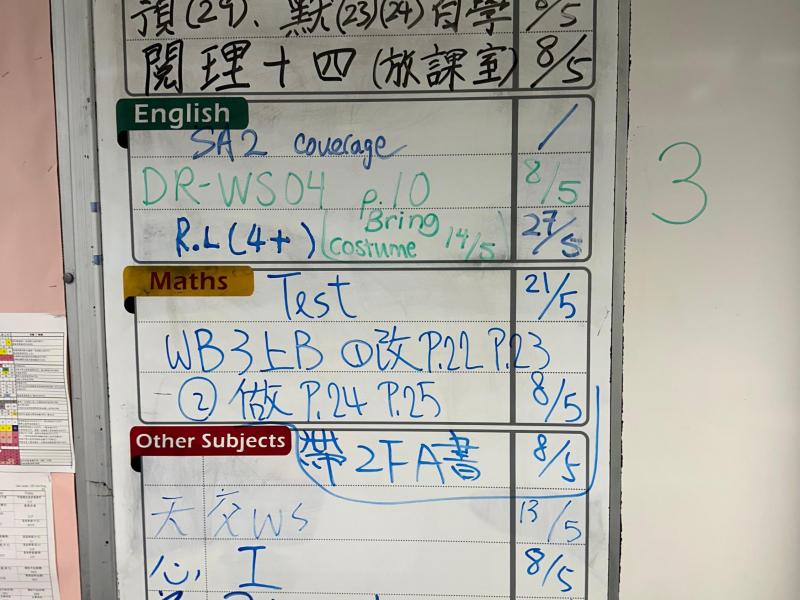 預(29)、默(23)(24)自學 8/5
閱理十四(放課室) 8/5
English
SA2 coverage /
DR-WS04 p.10 8/5
R.L(4+) (Bring costume 14/5) 27/5
Maths
Test 21/5
WB3上B ①改P.22 P.23
② 做 P.24 P.25 8/5
Other Subjects
帶2FA書 8/5
天交WS 13/5
心工 8/5
3